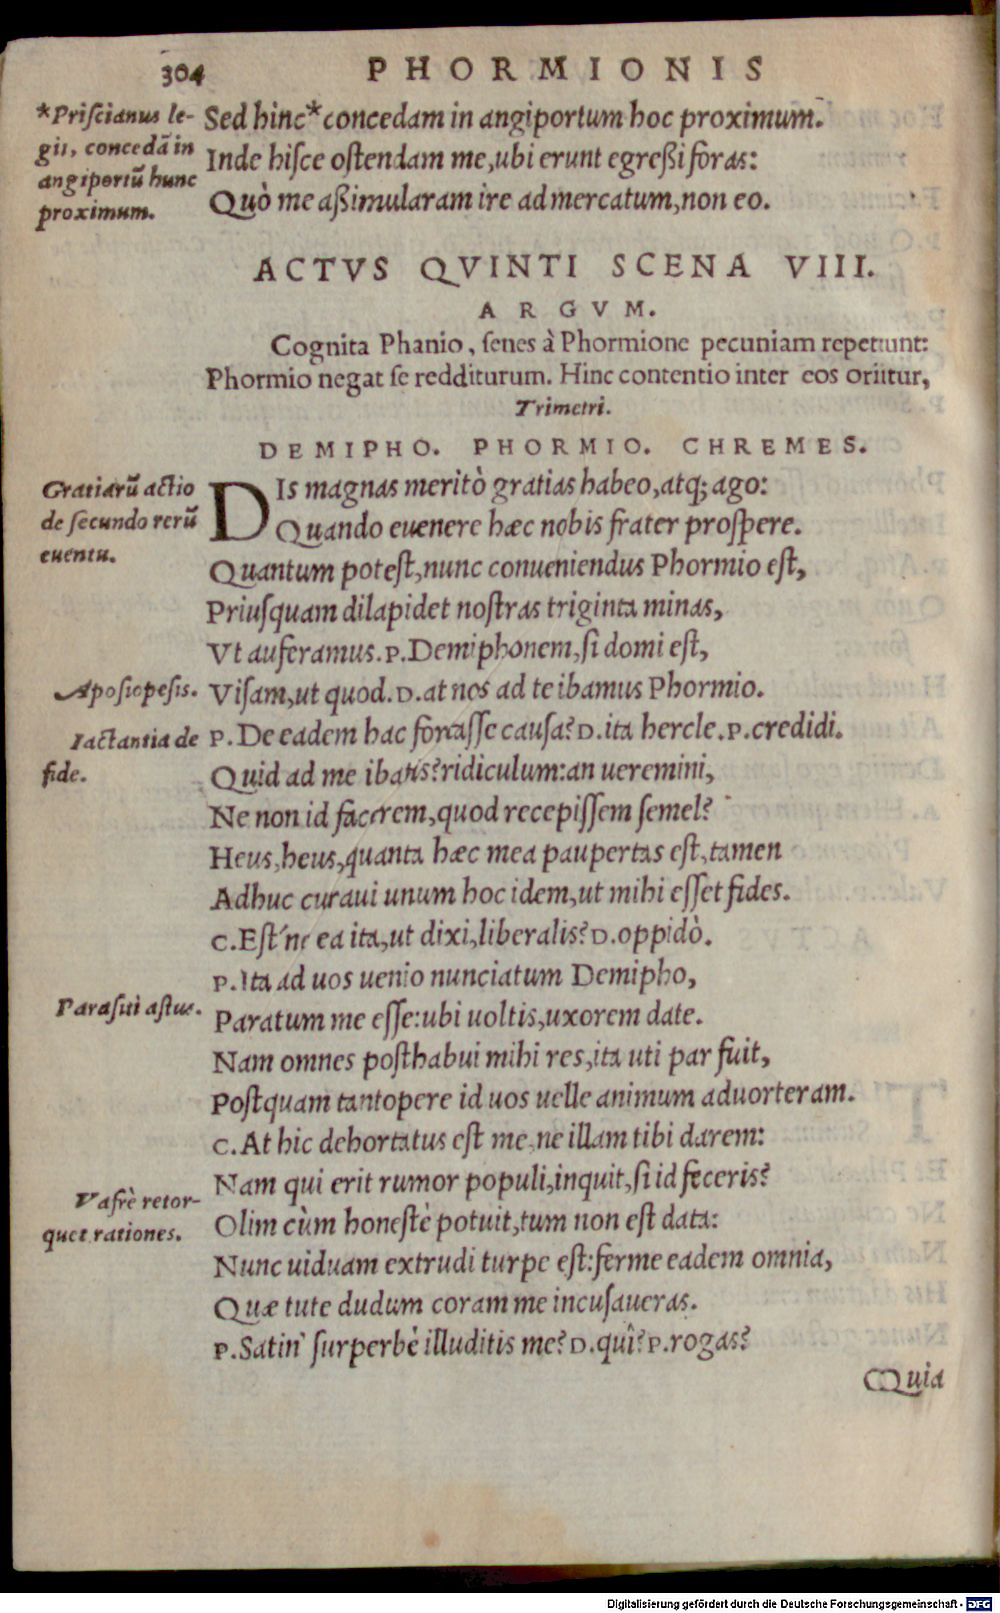 304 PHORMIONIS
*Priscianus le-
git, concedā in
angiportū hunc
proximum.
Sed hinc* concedam in angiportum hoc proximum.
Inde hisce ostendam me, ubi erunt egreßi foras:
Quò me aßimularam ire ad mercatum, non eo.
ACTVS QVINTI SCENA VIII.
ARGVM.
Cognita Phanio, senes à Phormione pecuniam repetunt:
Phormio negat se redditurum. Hinc contentio inter eos oriitur,
Trimetri.
DEMIPHO. PHORMIO. CHREMES.
Gratiarū actio
de secundo rerū
euentu.
DIs magnas meritò gratias habeo, atq; ago:
Quando euenere hæc nobis frater prospere.
Quantum potest, nunc conueniendus Phormio est,
Priusquam dilapidet nostras triginta minas,
Vt auferamus. P. Demiphonem, si domi est,
Aposiopesis.
Visam, ut quod. D. at nos ad te ibamus Phormio.
Iactantia de
fide.
P. De eadem hac fortasse causa? D. ita hercle. P. credidi.
Quid ad me ibatis? ridiculum: an ueremini,
Ne non id facerem, quod recepissem semel?
Heus, heus, quanta hæc mea paupertas est, tamen
Adhuc curaui unum hoc idem, ut mihi esset fides.
C. Est'ne ea ita, ut dixi, liberalis? D. oppidò.
P. Ita ad uos uenio nunciatum Demipho,
Parasiti astus.
Paratum me esse: ubi uoltis, uxorem date.
Nam omnes posthabui mihi res, ita uti par fuit,
Postquam tantopere id uos uelle animum aduorteram.
C. At hic dehortatus est me, ne illam tibi darem:
Nam qui erit rumor populi, inquit, si id feceris?
Vafrè retor-
quet rationes.
Olim cùm honestè potuit, tum non est data:
Nunc uiduam extrudi turpe est: ferme eadem omnia,
Quæ tute dudum coram me incusaueras.
P. Satin' surperbè illuditis me? D. quî? P. rogas?
Quia
Digitalisierung gefördert durch die Deutsche Forschungsgemeinschaft - DFG